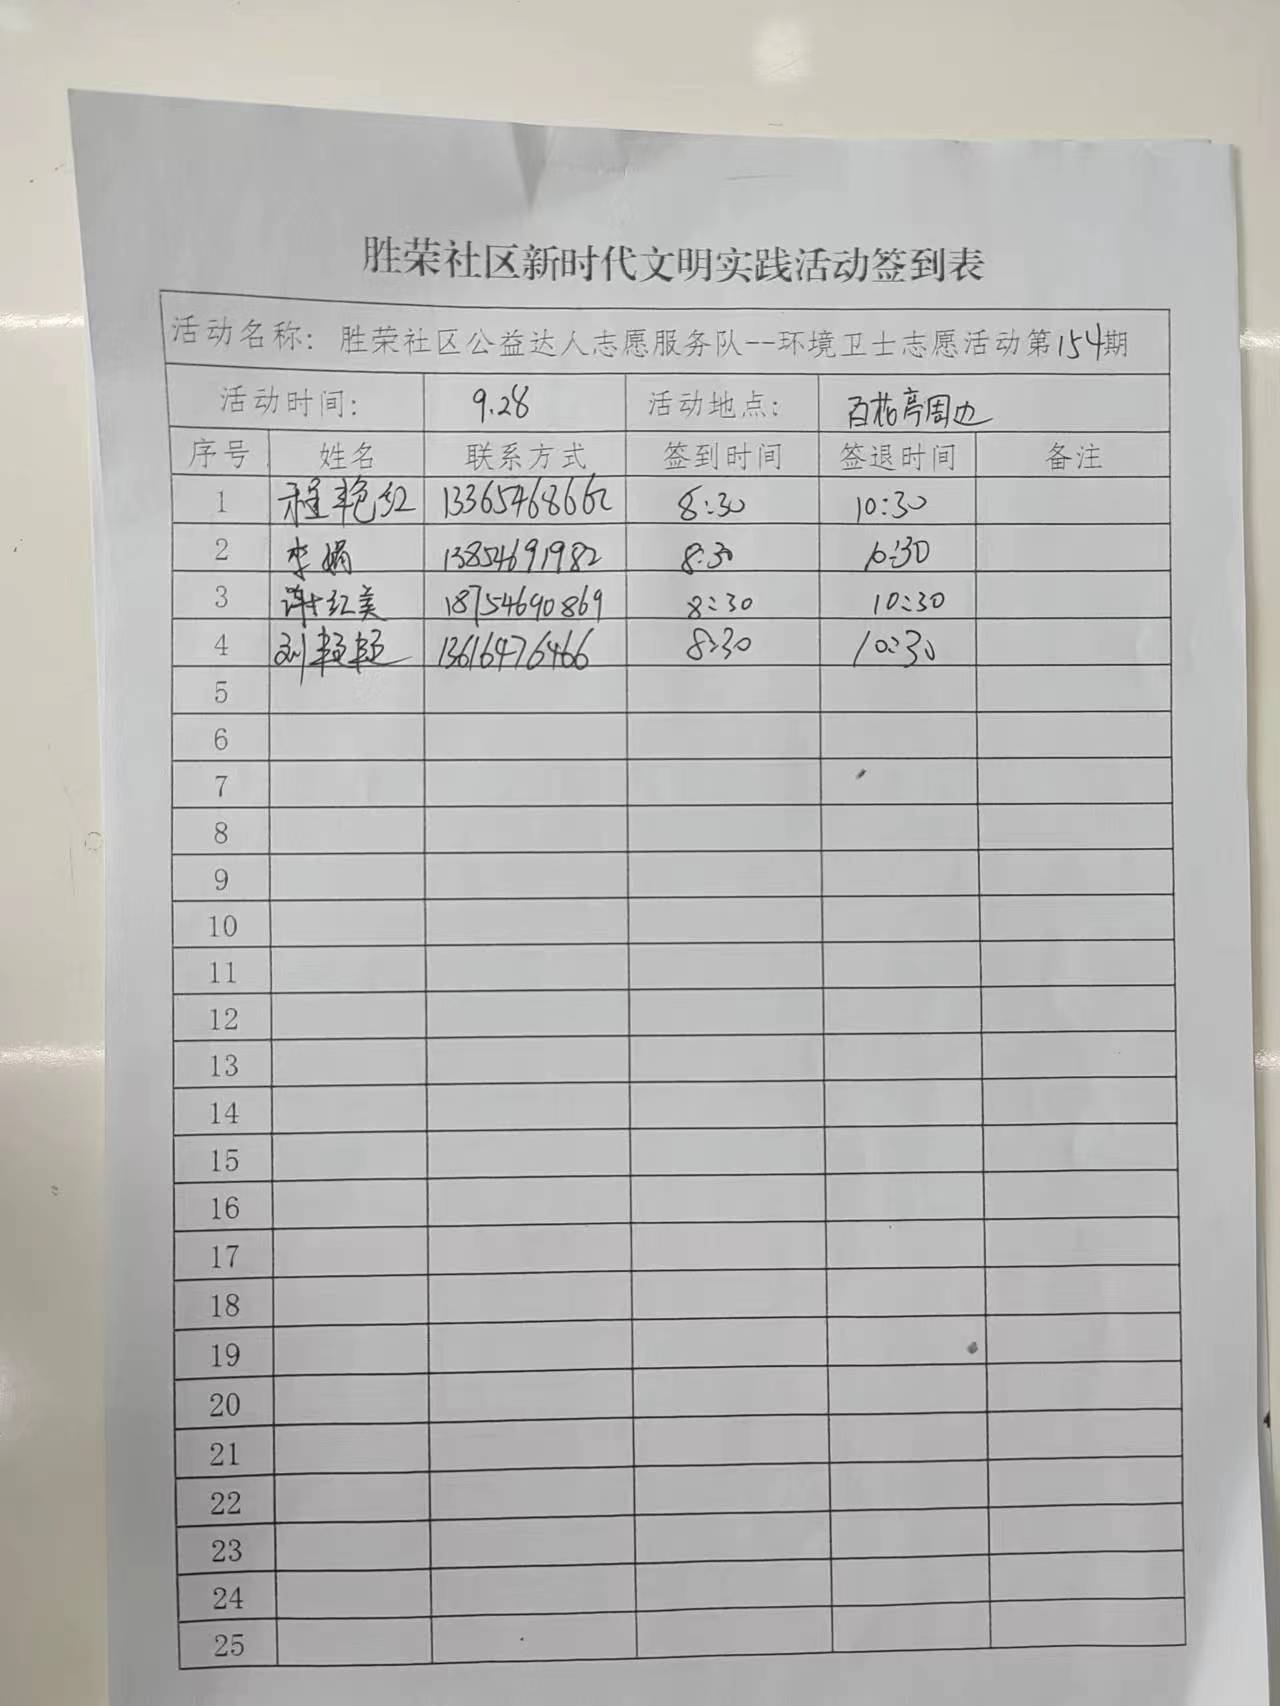 胜荣社区新时代文明实践活动签到表
活动名称：胜荣社区公益达人志愿服务队--环境卫士志愿活动第154期
活动时间： 9.28 活动地点： 百花亭周边
序号 姓名 联系方式 签到时间 签退时间 备注
1 程艳红 13365468662 8:30 10:30
2 李娟 13854691982 8:30 10:30
3 谢红美 18754690869 8:30 10:30
4 刘艳艳 13616476466 8:30 10:30
5
6
7
8
9
10
11
12
13
14
15
16
17
18
19
20
21
22
23
24
25